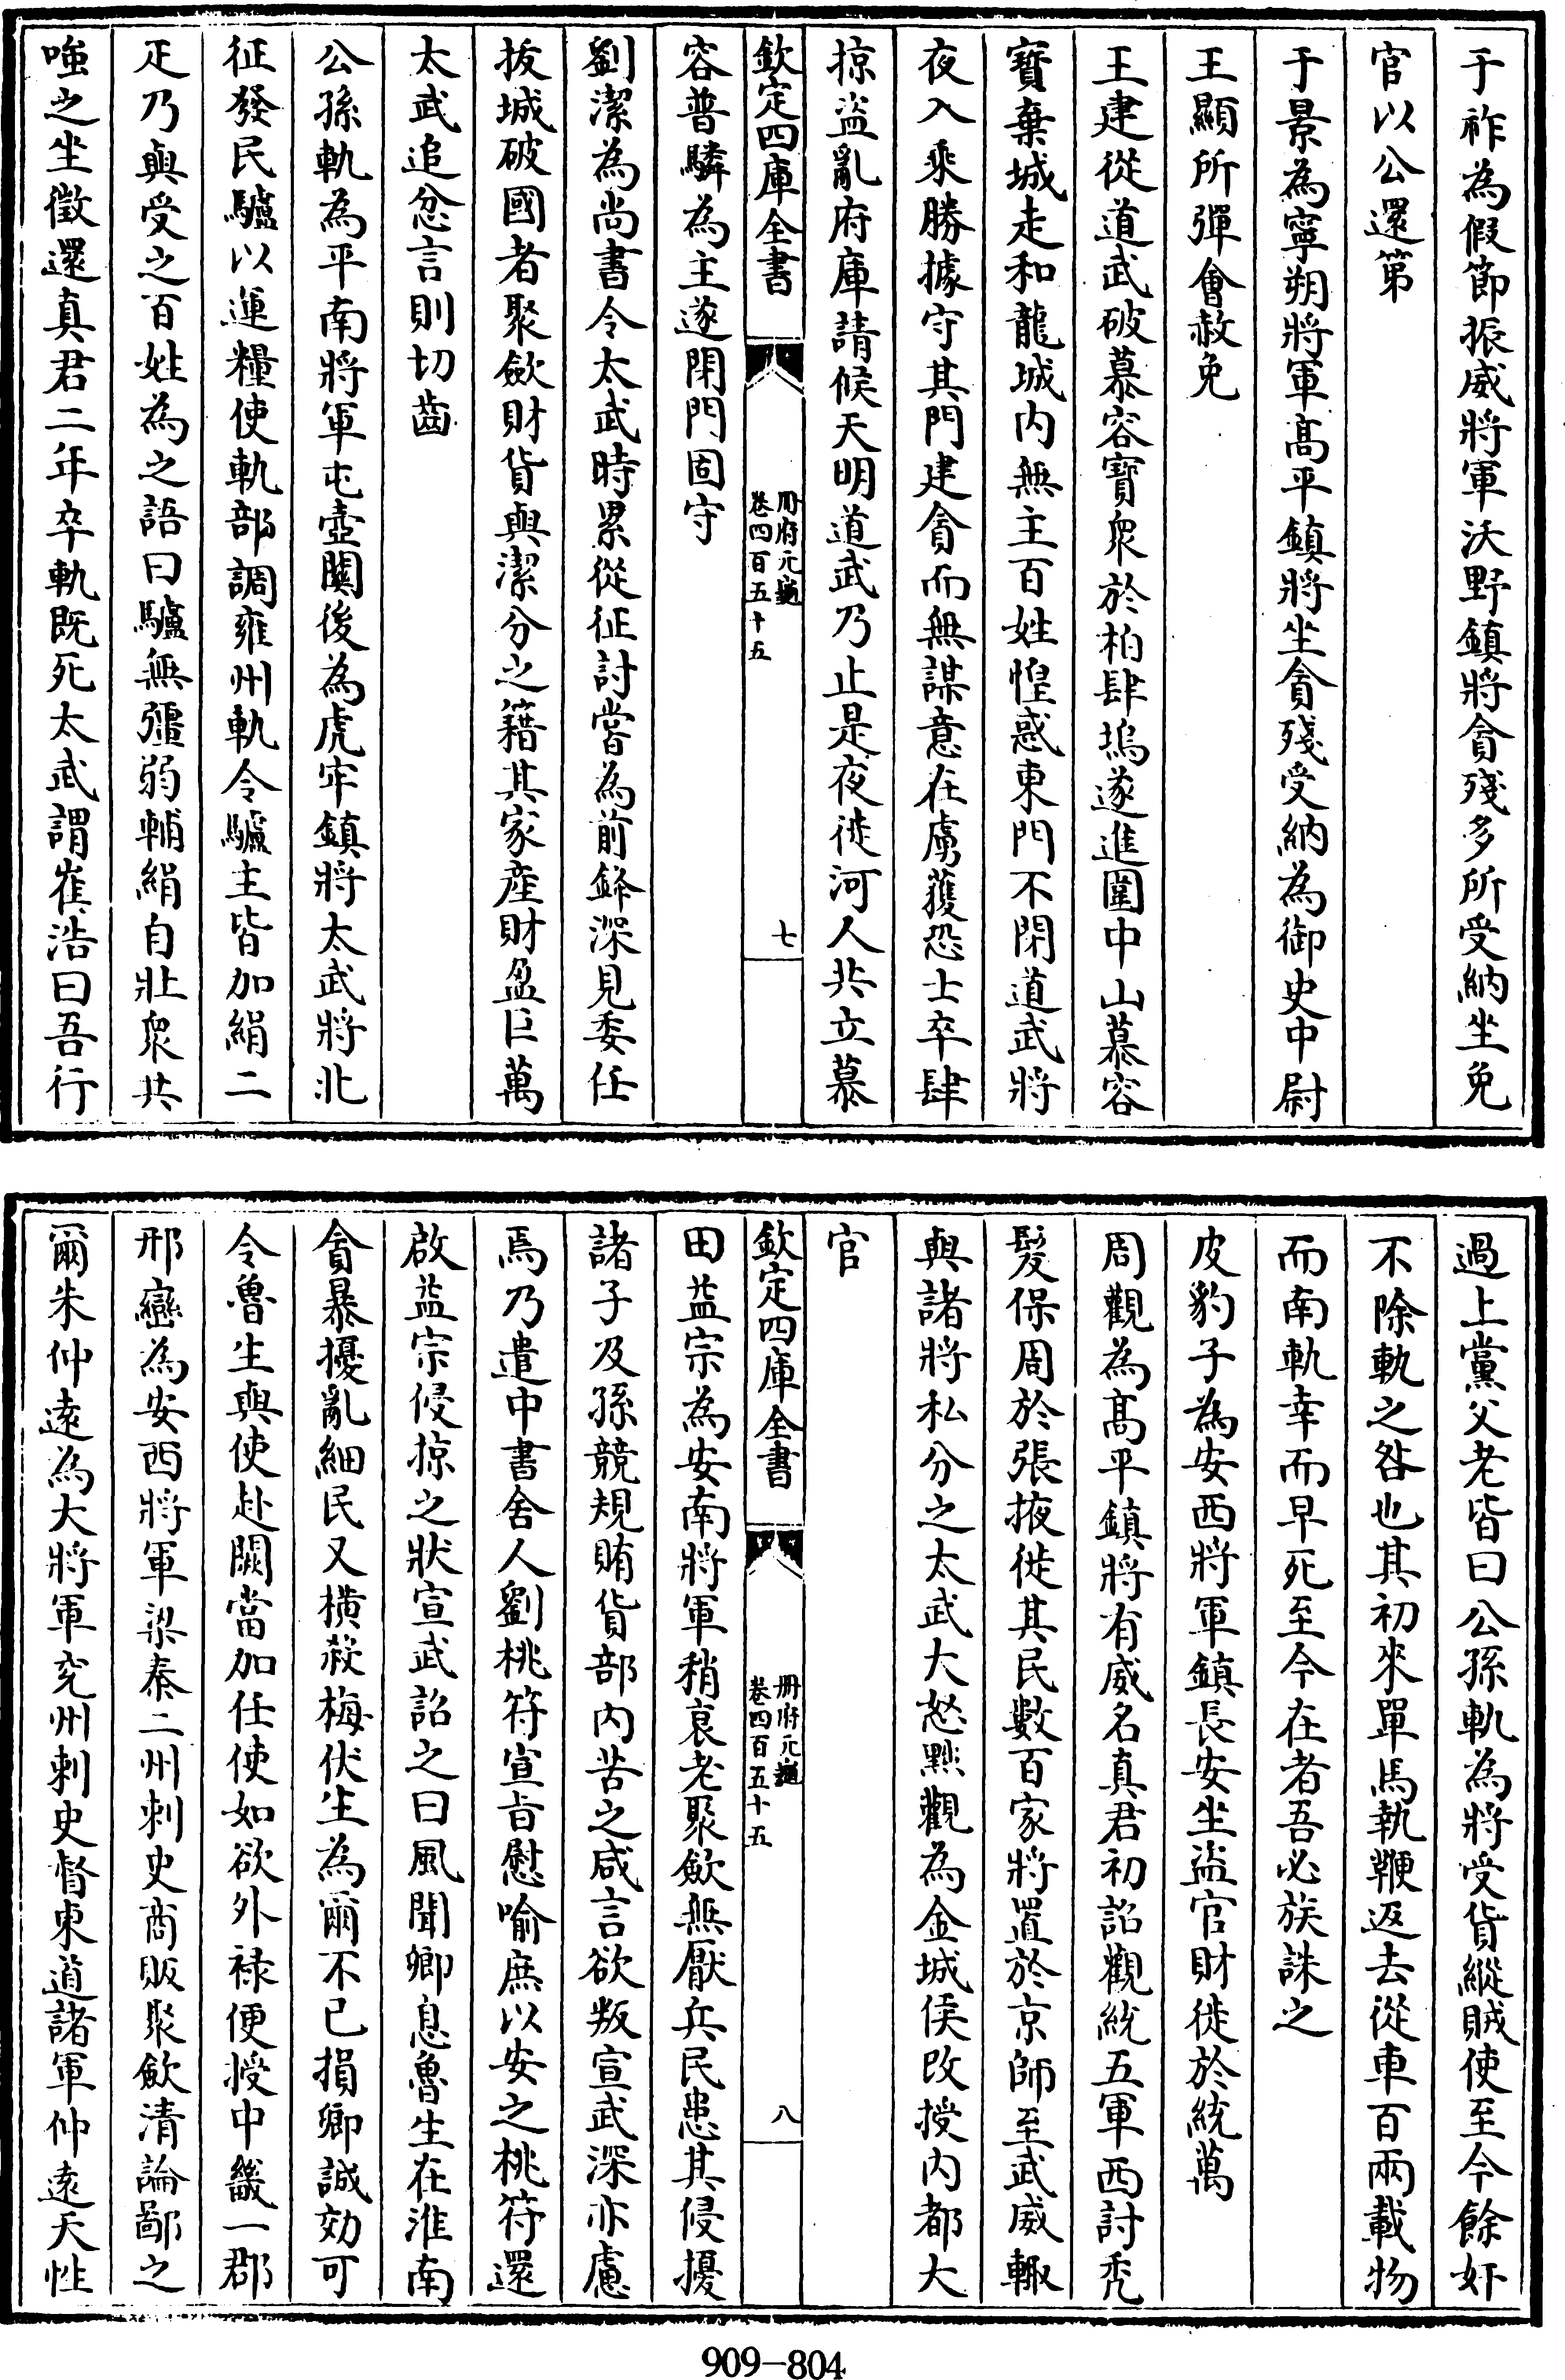 于祚為假節振威將軍沃野鎮將貪殘多所受納坐免
官以公還第
于景為寧朔將軍髙平鎮將坐貪殘受納為御史中尉
王顯所彈會赦免
王建從道武破慕容寶衆於柏肆塢遂進圍中山慕容
寶棄城走和龍城内無主百姓惶惑東門不閉道武將
夜入乘勝據守其門建貪而無謀意在虜獲恐士卒肆
掠盜亂府庫請候天明道武乃止是夜徒河人共立慕
欽定四庫全書
冊府元龜
卷四百五十五
七
容普驎為主遂閉門固守
劉潔為尚書令太武時累從征討當為前鋒深見委任
拔城破國者聚歛財貨與潔分之籍其家産財盈巨萬
太武追忿言則切齒
公孫軌為平南將軍屯壺闗後為虎牢鎮將太武將北
征發民驢以運糧使軌部調雍州軌令驢主皆加絹二
疋乃與受之百姓為之語曰驢無彊弱輔絹自壯衆共
嗤之坐徵還真君二年卒軌既死太武謂崔浩曰吾行
過上黨父老皆曰公孫軌為將受貨縱賊使至今餘奸
不除軌之咎也其初來單馬執鞭返去從車百兩載物
而南軌幸而早死至今在者吾必族誅之
皮豹子為安西將軍鎮長安坐盜官財徙於統萬
周觀為髙平鎮將有威名真君初詔觀統五軍西討秃
髪保周於張掖徙其民數百家將置於京師至武威輙
與諸將私分之太武大怒黜觀為金城侯改授内都大
官
欽定四庫全書
冊府元龜
卷四百五十五
八
田益宗為安南將軍稍衰老聚歛無厭兵民患其侵擾
諸子及孫競規賄貨部内苦之咸言欲叛宣武深亦慮
焉乃遣中書舍人劉桃符宣旨慰喻庶以安之桃符還
啟益宗侵掠之狀宣武詔之曰風聞卿息魯生在淮南
貪暴擾亂細民又横殺梅伏生為爾不已損卿誠効可
令魯生與使赴闕當加任使如欲外禄便授中畿一郡
邢巒為安西將軍梁秦二州刺史商販聚歛清論鄙之
爾朱仲逺為大將軍兖州刺史督東道諸軍仲逺天性
909-804